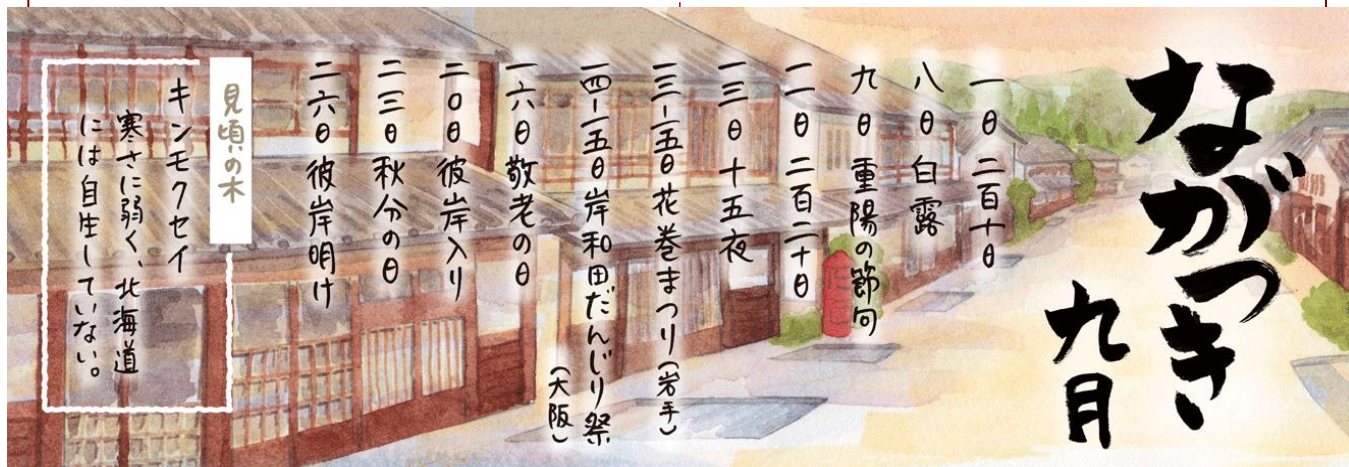 ながつき
九月
一日 二百十日
八日 白露
九日 重陽の節句
一一日 二百二十日
一三日 十五夜
一三-一五日 花巻まつり(岩手)
一四-一五日 岸和田だんじり祭
(大阪)
一六日 敬老の日
二〇日 彼岸入り
二三日 秋分の日
二六日 彼岸明け
見頃の木
キンモクセイ
寒さに弱く、北海道
には自生していない。